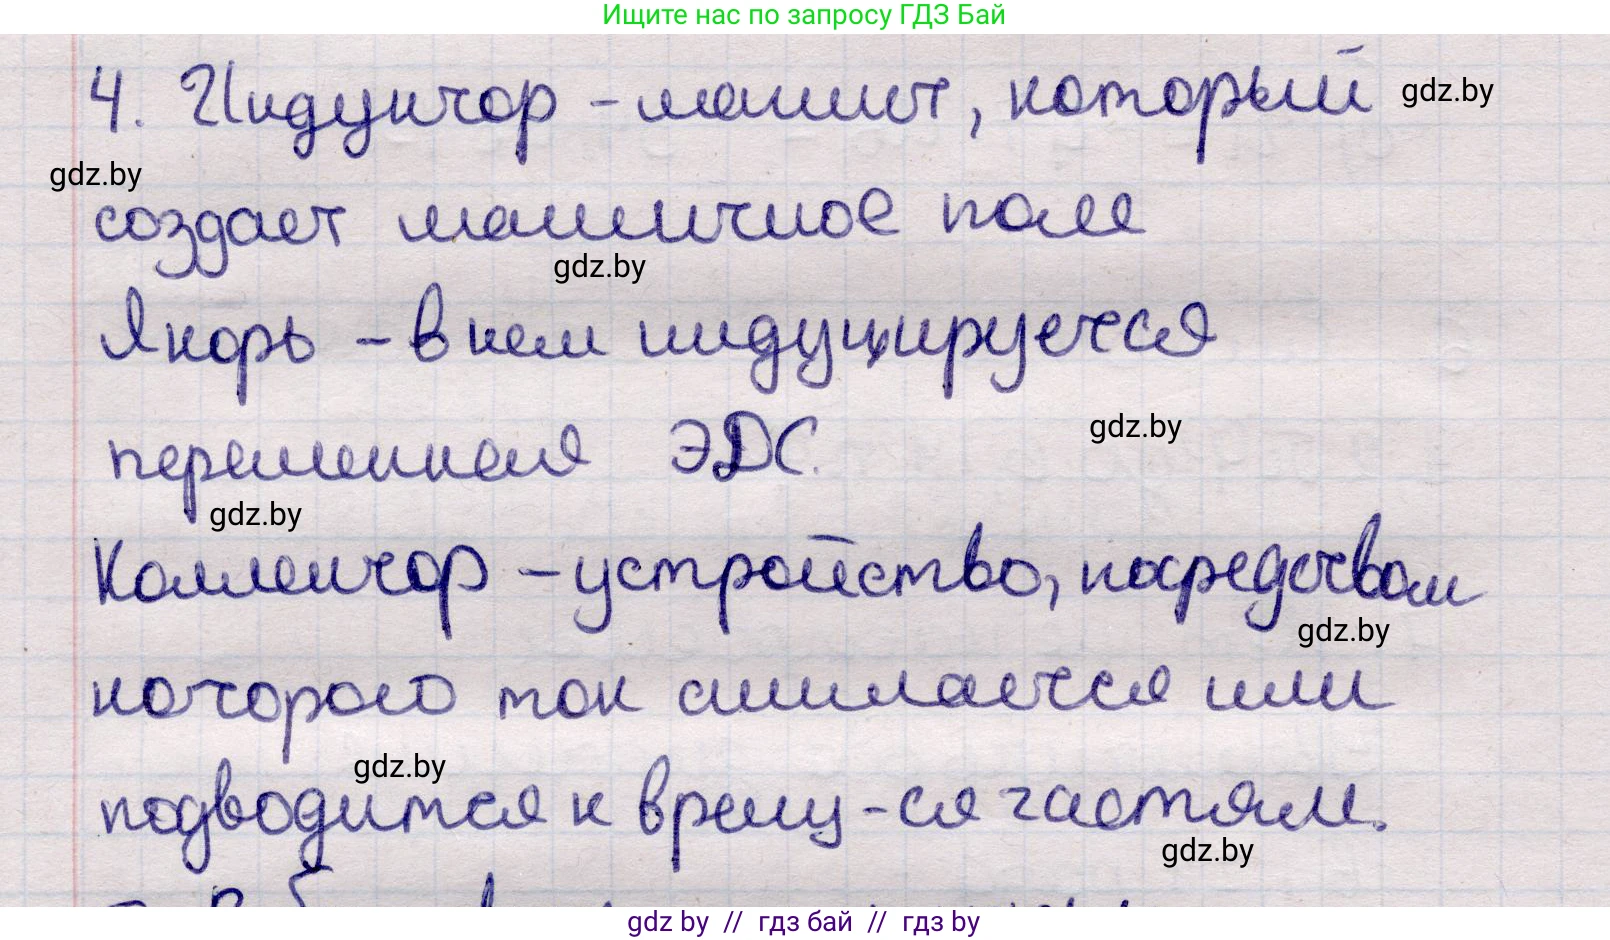 Ищите нас по запросу ГДЗ Бай
4. Индуктор – магнит, который gdz.by
gdz.by
создает магнитное поле
gdz.by
Якорь – в нем индуцируется
переменная ЭДС.
gdz.by
gdz.by
Коллектор – устройство, посредством
gdz.by
которого ток снимается или
gdz.by
подводится к вращ-ся частям.
gdz.by
gdz by // гдз бай // гдз by